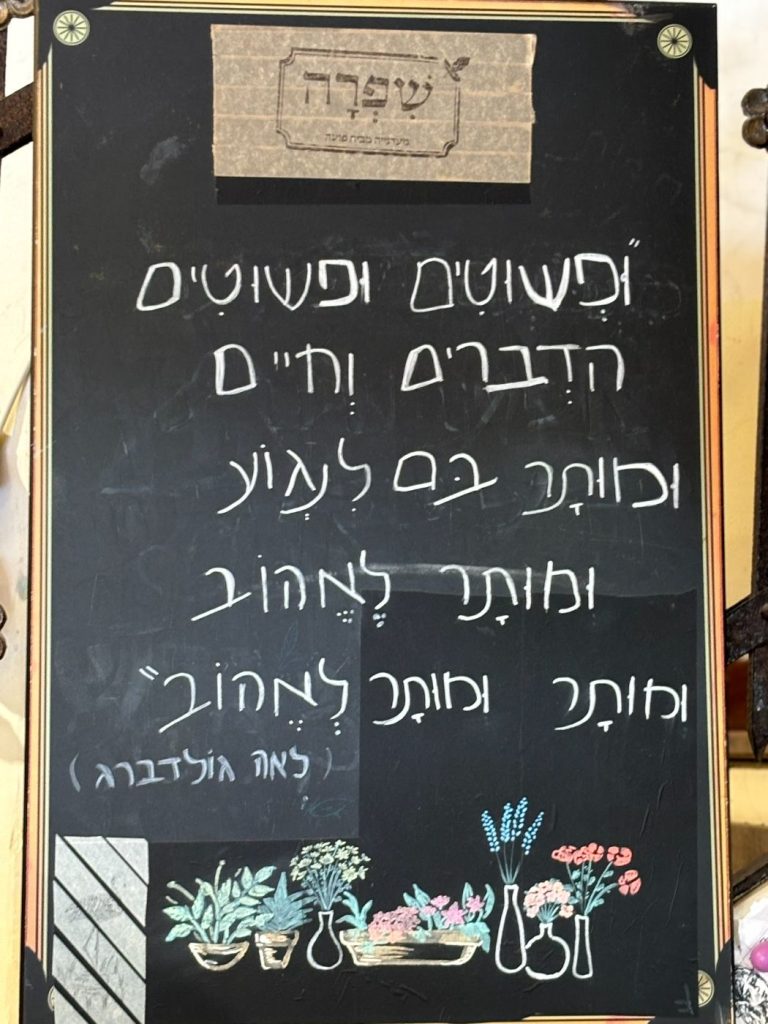 שִׁפְרָה
מעדנייה מבית פועה
"וּפְשוּטִים וּפשוּטִים
הדְברים וְחיים
וּמוּתָר בּם לִנְגוֹעַ
וּמוּתָר לֶאֱהוֹב
וּמוּתָר וּמוּתָר לֶאֱהוֹב"
(לאה גולדברג)